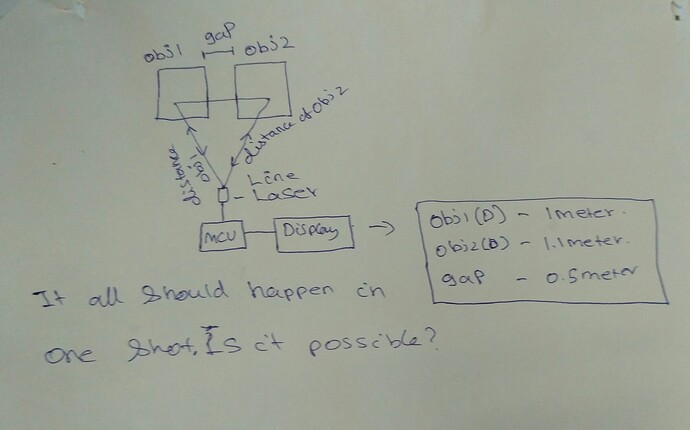 gap
obj1
obj2
distance
obj1
distance of obj2
Line
- Laser
MCU
Display
obj1(D) - 1meter.
obj2(D) - 1.1meter.
gap - 0.5meter
It all should happen in
one shot. Is it possible?